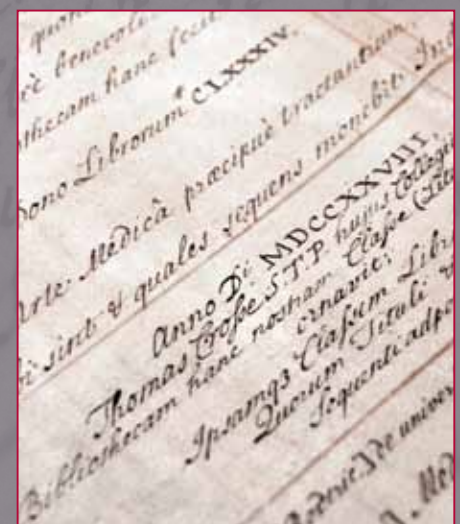 benevol
thecam hanc fecit
Dono Librorum CLXXXIV.
Arte Medicâ præcipuè tractantium.
sint & quales sequens monebit
Anno Di MDCCXXVIII.
Thomas Crosse S.T.P. hujus Collegii
Bibliothecam hanc nostram Classe (Titu
ornavit:
Ipsamq3 Classum Libr
Quorum Tituli &
Sequenti adpo
de univer